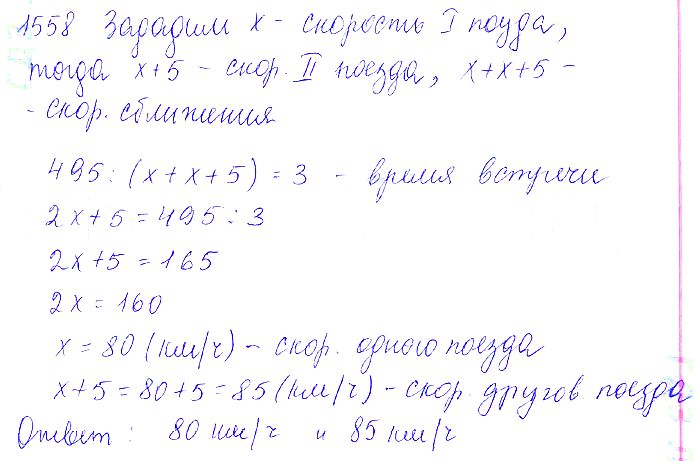 1558 Зададим x - скорость I поезда,
тогда x+5 - скор. II поезда, x+x+5 -
- скор. сближения
495 : (x+x+5) = 3 - время встречи
2x+5 = 495 : 3
2x+5 = 165
2x = 160
x = 80 (км/ч) - скор. одного поезда
x+5 = 80+5 = 85 (км/ч) - скор. другов поезда
Ответ : 80 км/ч и 85 км/ч